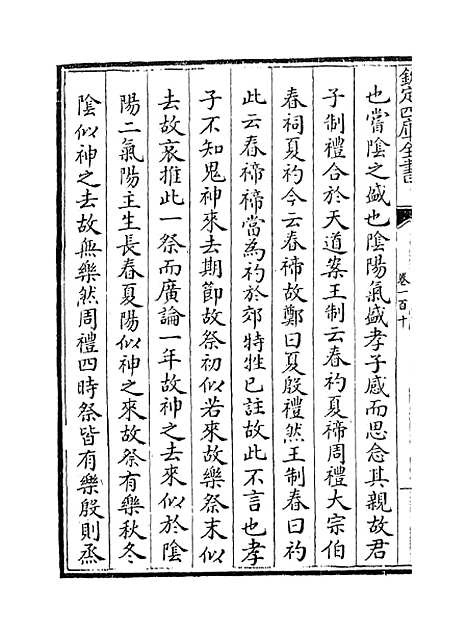 欽定四庫全書
卷一百十
也嘗陰之盛也陰陽氣盛孝子感而思念其親故君
子制禮合於天道案王制云春礿夏禘周禮大宗伯
春祠夏礿今云春禘故鄭曰夏殷禮然王制春曰礿
此云春禘禘當為礿於郊特牲已註故此不言也孝
子不知鬼神來去期節故祭初似若來故樂祭末似
去故哀推此一祭而廣論一年故神之去來似於陰
陽二氣陽主生長春夏陽似神之來故祭有樂秋冬
陰似神之去故無樂然周禮四時祭皆有樂殷則烝